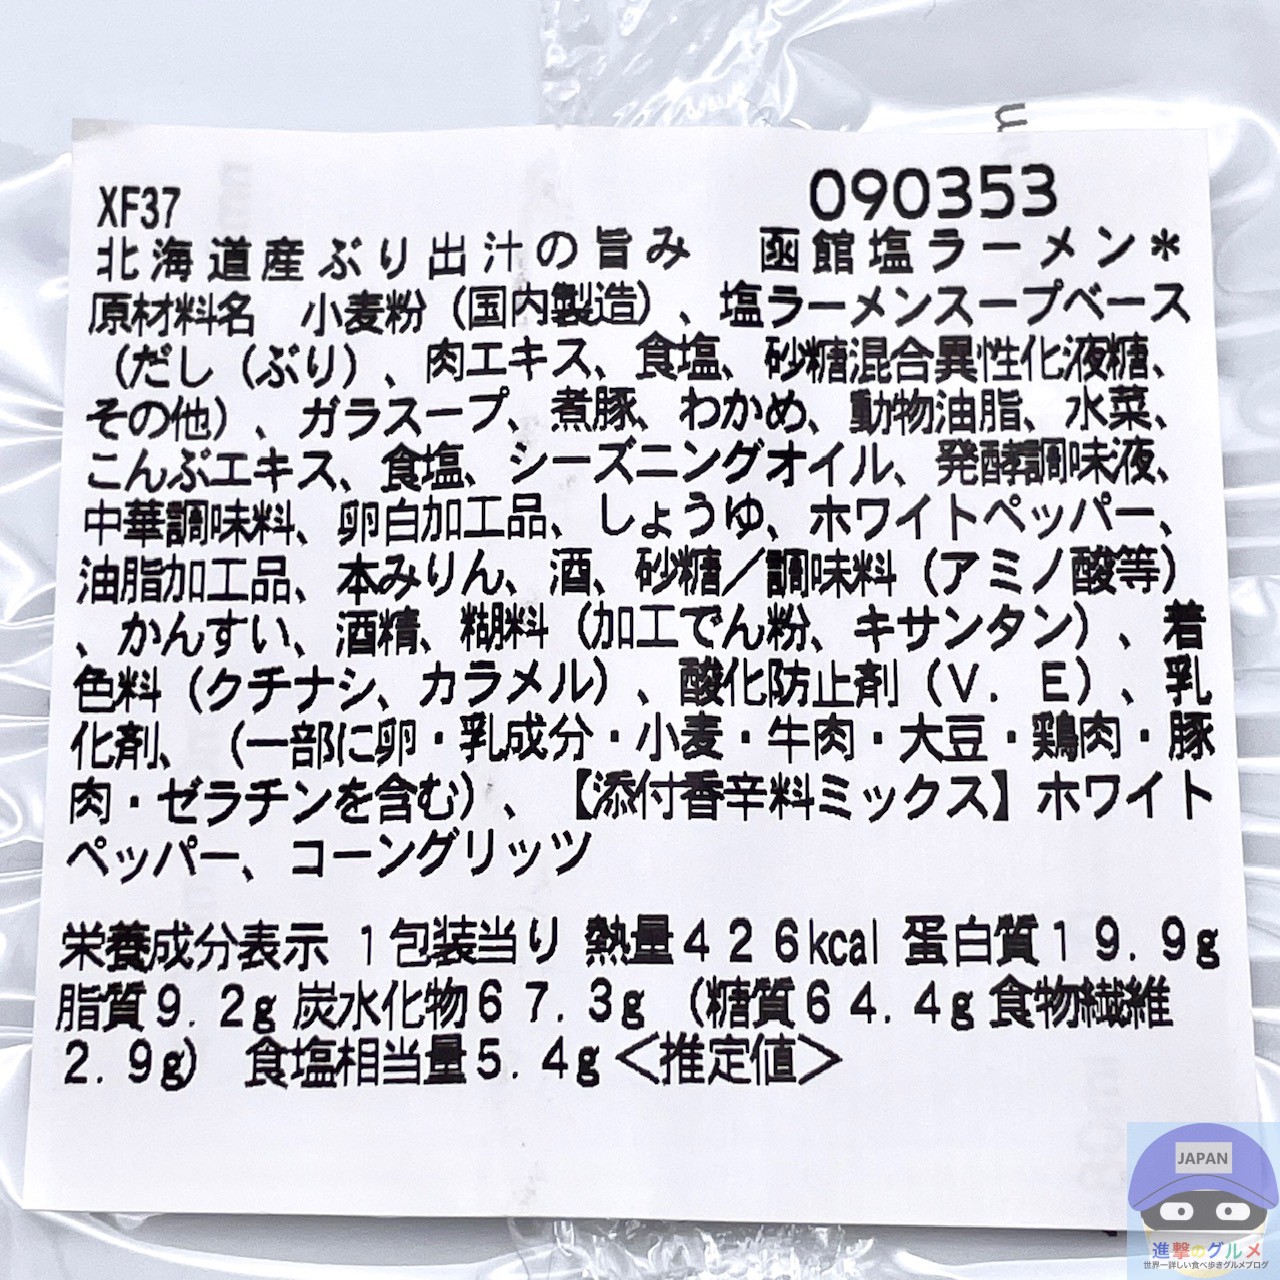 XF37
090353
北海道産ぶり出汁の旨み　函館塩ラーメン＊
原材料名　小麦粉（国内製造）、塩ラーメンスープベース
（だし（ぶり）、肉エキス、食塩、砂糖混合異性化液糖、
その他）、ガラスープ、煮豚、わかめ、動物油脂、水菜、
こんぶエキス、食塩、シーズニングオイル、発酵調味液、
中華調味料、卵白加工品、しょうゆ、ホワイトペッパー、
油脂加工品、本みりん、酒、砂糖／調味料（アミノ酸等）
、かんすい、酒精、糊料（加工でん粉、キサンタン）、着
色料（クチナシ、カラメル）、酸化防止剤（Ｖ．Ｅ）、乳
化剤、（一部に卵・乳成分・小麦・牛肉・大豆・鶏肉・豚
肉・ゼラチンを含む）、【添付香辛料ミックス】ホワイト
ペッパー、コーングリッツ
栄養成分表示 1包装当り 熱量４２６kcal 蛋白質１９．９g
脂質９．２g 炭水化物６７．３g（糖質６４．４g 食物繊維
２．９g）　食塩相当量５．４g＜推定値＞
JAPAN
進撃のグルメ
世界一詳しい食べ歩きグルメブログ